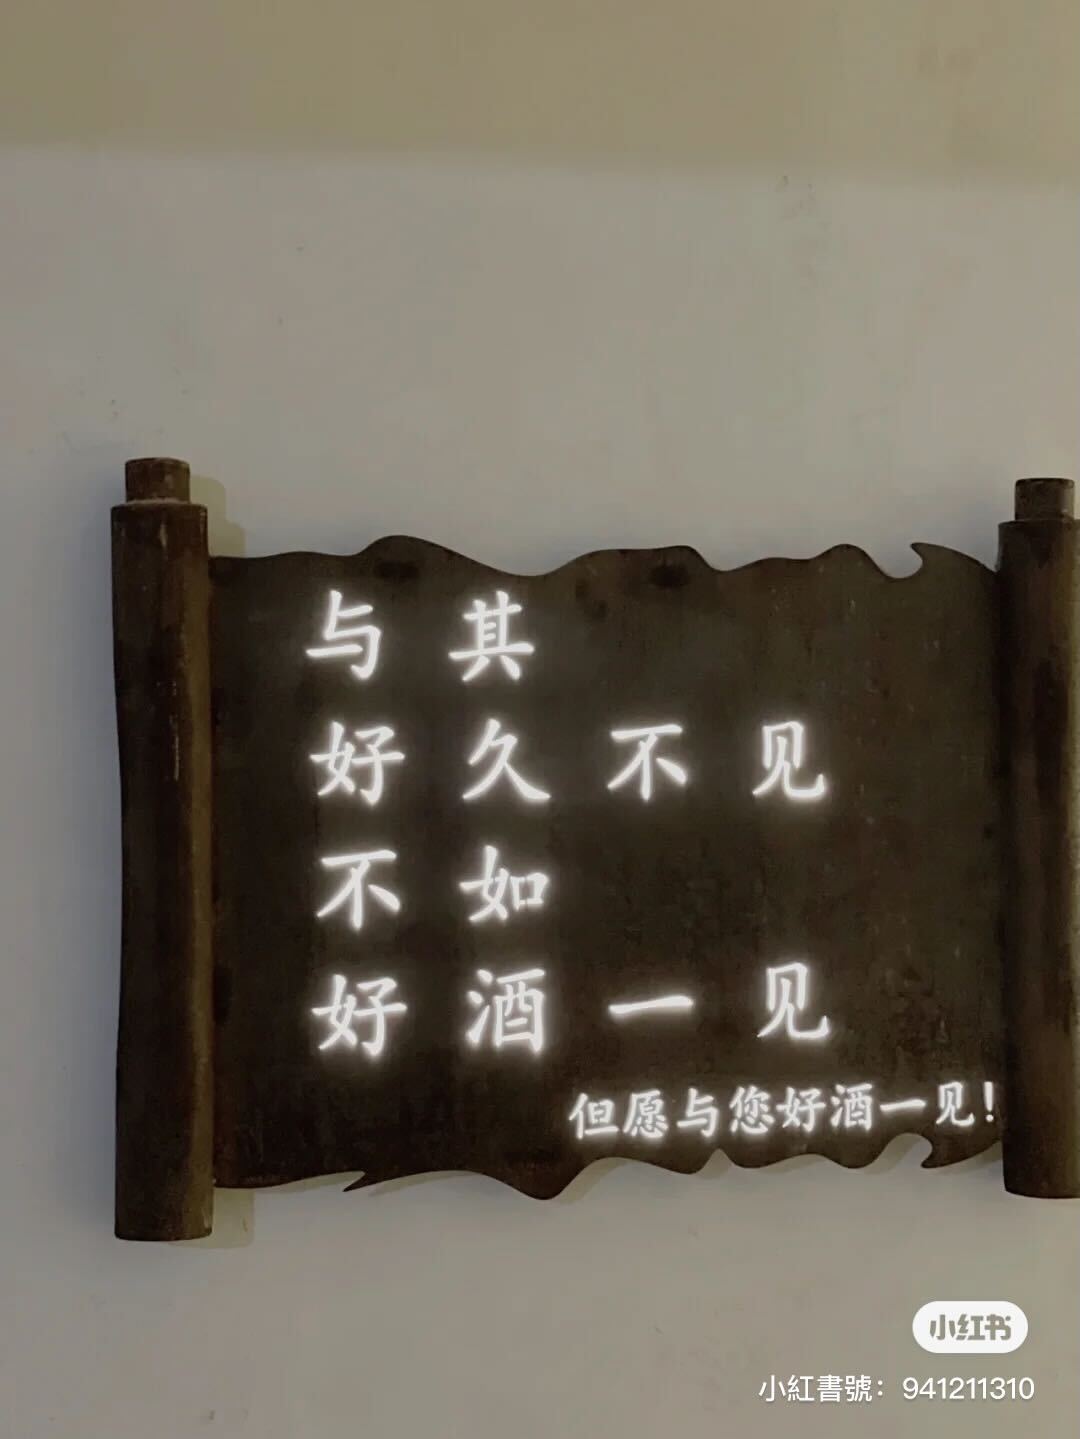 与其
好久不见
不如
好酒一见
但愿与您好酒一见!
小红书
小紅書號：941211310